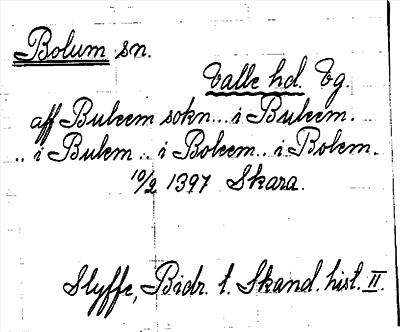 Bolum sn.
Valle hd. Vg.
aff Buleem sokn... i Buleem.
.. i Bulem .. i Boleem .. i Bolem.
10/2 1397 Skara.
Styffe, Bidr. t. Skand. hist. II.